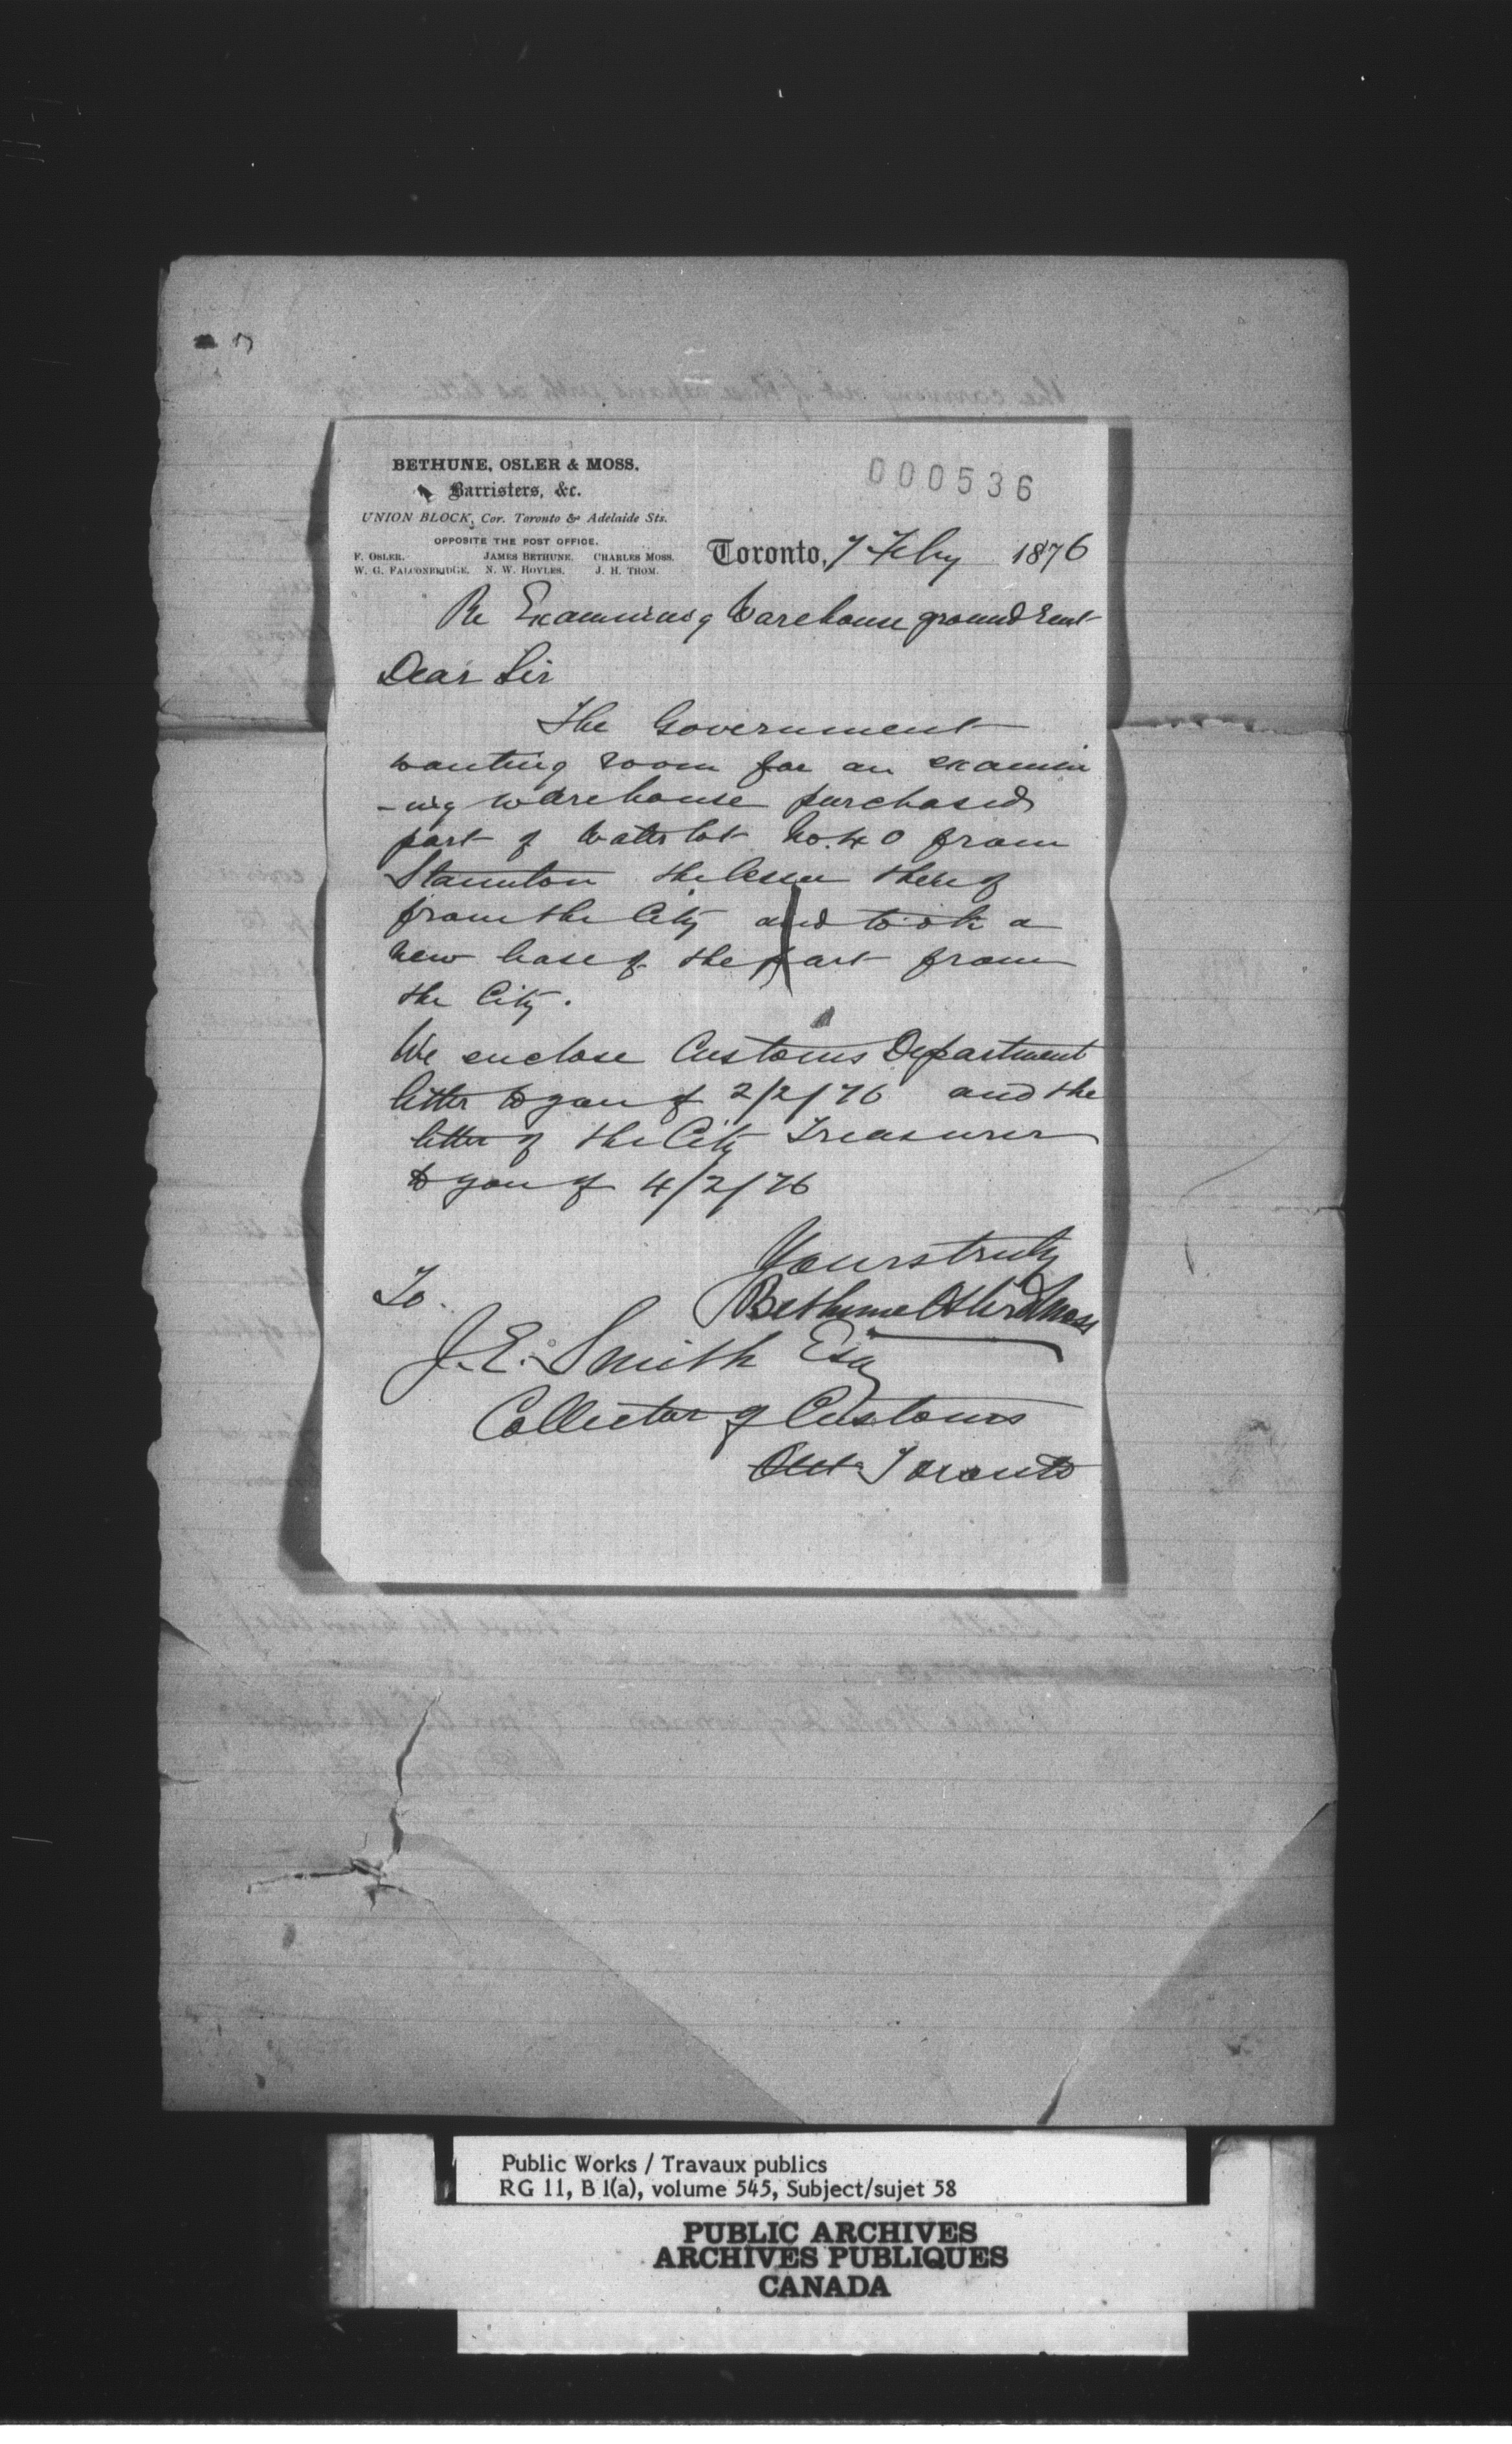 BETHUNE, OSLER & MOSS.
Barristers, &c.
UNION BLOCK, Cor. Toronto & Adelaide Sts.
OPPOSITE THE POST OFFICE.
F. OSLER. JAMES BETHUNE. CHARLES MOSS.
W. G. FALCONBRIDGE. N. W. HOYLES. J. H. THOM.
000536
Toronto, 7 Feby 1876
Re Examining Warehouse ground rent
Dear Sir
The Government
wanting room for an examin
-ing warehouse purchased
part of Water lot No. 40 from
Staunton the lessee thereof
from the City and took a
new lease of the part from
the City.
We enclose Customs Department
letter to you of 2/2/76 and the
letter of the City Treasurer
to you of 4/2/76
Yours truly
Bethune Osler & Moss
To.
J. E. Smith Esq
Collector of Customs
Toronto
Public Works / Travaux publics
RG 11, B 1(a), volume 545, Subject/sujet 58
PUBLIC ARCHIVES
ARCHIVES PUBLIQUES
CANADA